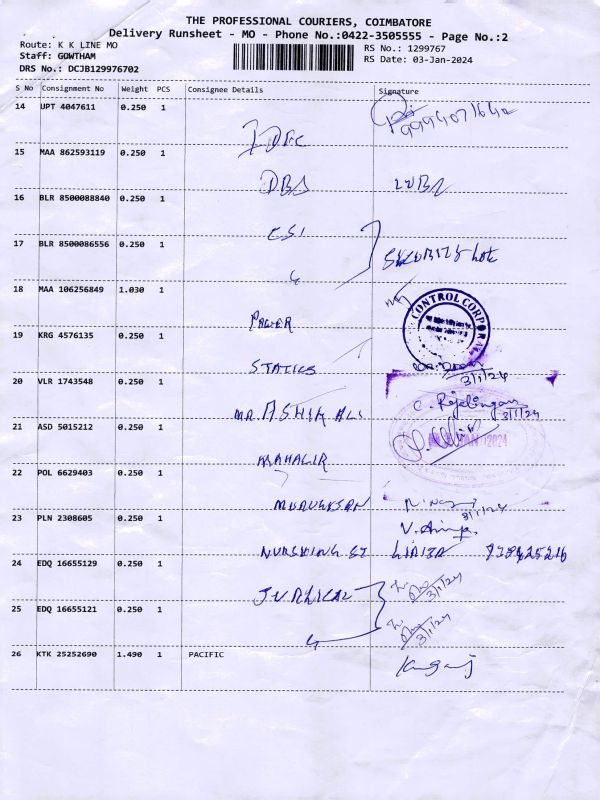 THE PROFESSIONAL COURIERS, COIMBATORE
Delivery Runsheet - MO - Phone No.:0422-3505555 - Page No.:2
Route: K K LINE MO
RS No.: 1299767
Staff: GOWTHAM
RS Date: 03-Jan-2024
DRS No.: DCJB129976702
S No Consignment No Weight PCS Consignee Details Signature
14 UPT 4047611 0.250 1 IDFC
15 MAA 862593119 0.250 1 DBS
16 BLR 8500088840 0.250 1 CSI
17 BLR 8500086556 0.250 1
18 MAA 106256849 1.030 1 POWER
CONTROL CORPORA
3/1/24
19 KRG 4576135 0.250 1 STATICS
20 VLR 1743548 0.250 1 MR. ASHIK ALI
3/1/24
21 ASD 5015212 0.250 1 MAHALIR
2024
22 POL 6629403 0.250 1 MURUGESAN
3/1/24
23 PLN 2308605 0.250 1
24 EDQ 16655129 0.250 1
3/1/24
25 EDQ 16655121 0.250 1
3/1/24
26 KTK 25252690 1.490 1 PACIFIC